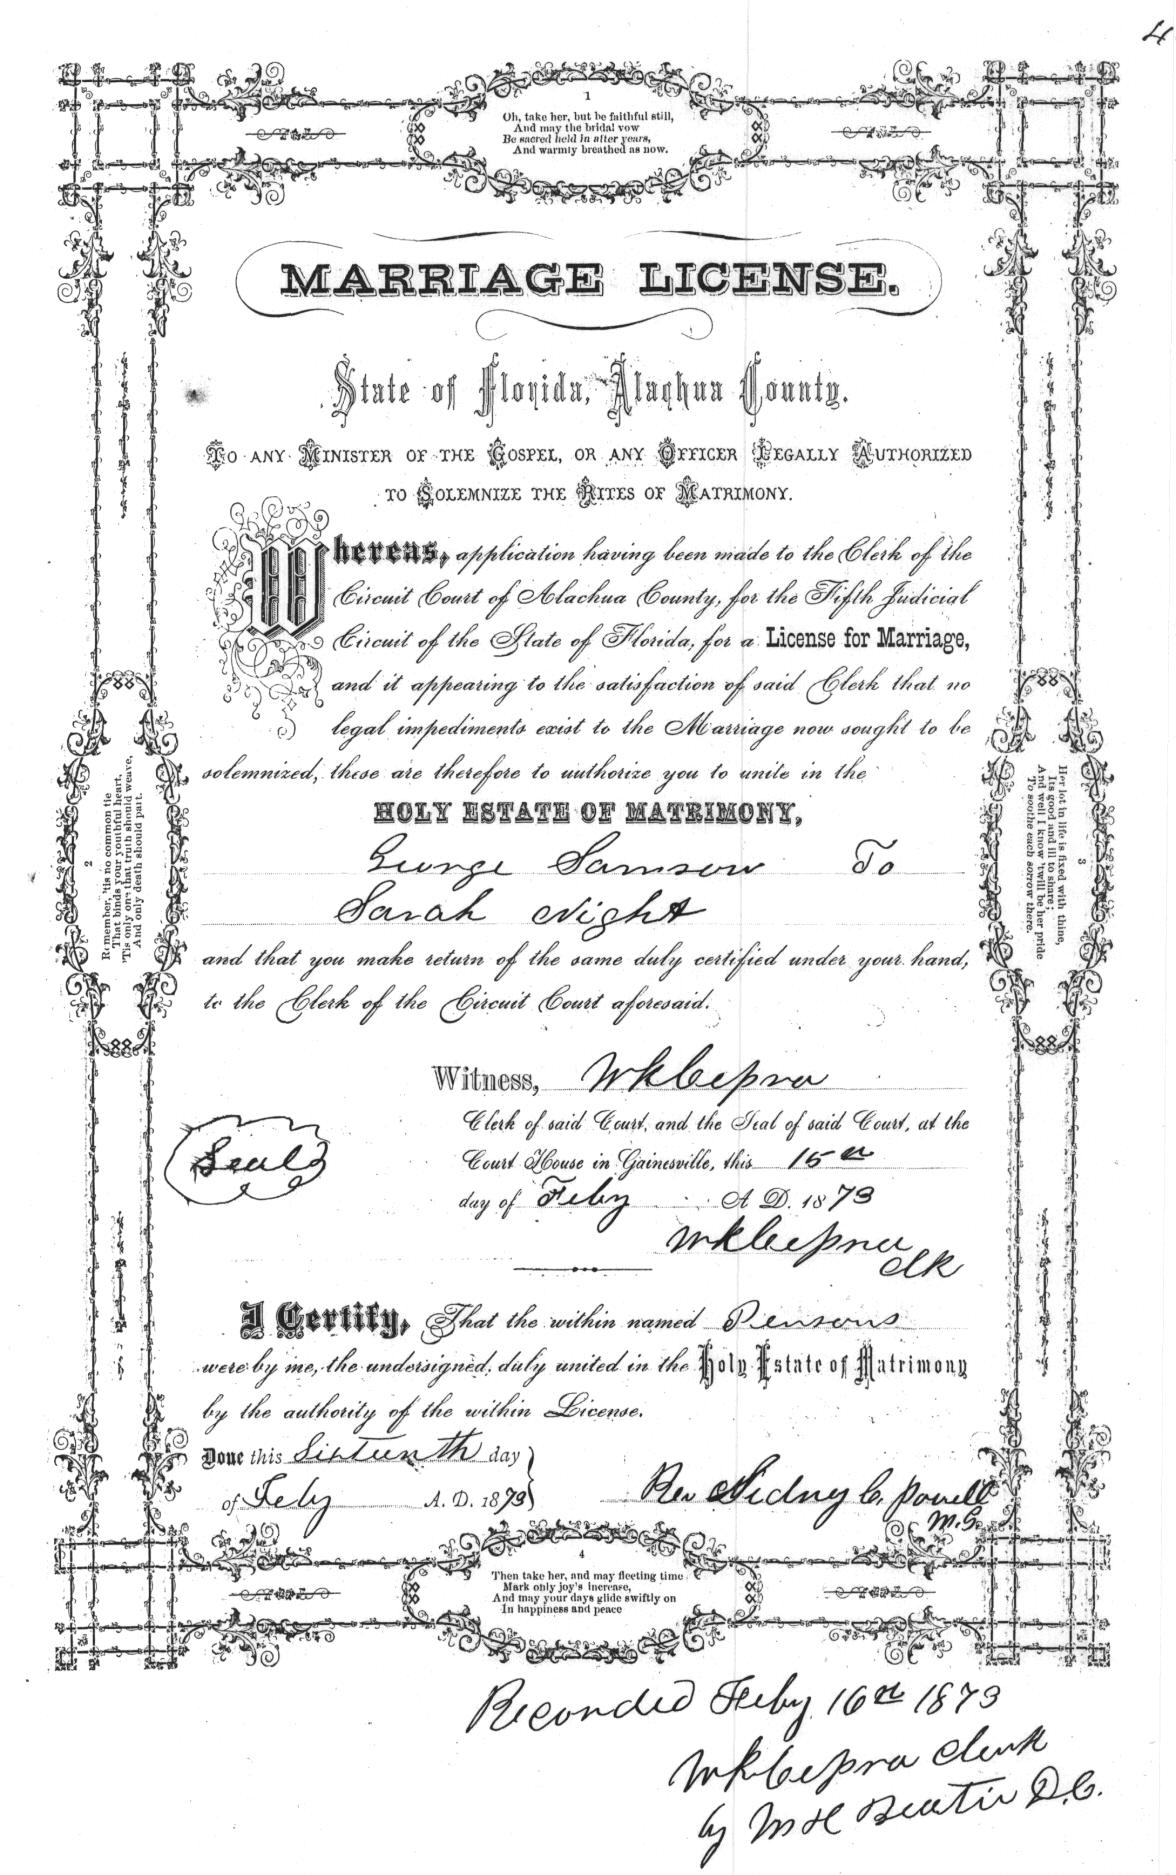 4
1
Oh, take her, but be faithful still,
And may the bridal vow
Be sacred held in after years,
And warmly breathed as now.
MARRIAGE LICENSE.
State of Florida, Alachua County.
TO ANY MINISTER OF THE GOSPEL, OR ANY OFFICER LEGALLY AUTHORIZED
TO SOLEMNIZE THE RITES OF MATRIMONY.
Whereas, application having been made to the Clerk of the
Circuit Court of Alachua County, for the Fifth Judicial
Circuit of the State of Florida, for a License for Marriage,
and it appearing to the satisfaction of said Clerk that no
legal impediments exist to the Marriage now sought to be
solemnized, these are therefore to authorize you to unite in the
HOLY ESTATE OF MATRIMONY,
George Samson To
Sarah Night
and that you make return of the same duly certified under your hand,
to the Clerk of the Circuit Court aforesaid.
2
Remember, 'tis no common tie
That binds your youthful heart,
'Tis only one that truth should weave,
And only death should part.
3
Her lot in life is fixed with thine,
Its good and ill to share;
And well I know 'twill be her pride
To soothe each sorrow there.
Witness, WKCessna
Clerk of said Court, and the Seal of said Court, at the
Court House in Gainesville, this 15th
day of Feby A. D. 1873
Seal
WKCessna
Clk
I Certify, That the within named Persons
were by me, the undersigned, duly united in the Holy Estate of Matrimony
by the authority of the within License.
Done this Sixteenth day
of Feby A. D. 1873
Rev Sidney C. Powell
M.G.
4
Then take her, and may fleeting time
Mark only joy's increase,
And may your days glide swiftly on
In happiness and peace
Recorded Feby 16th 1873
WKCessna Clerk
by M H D.C.